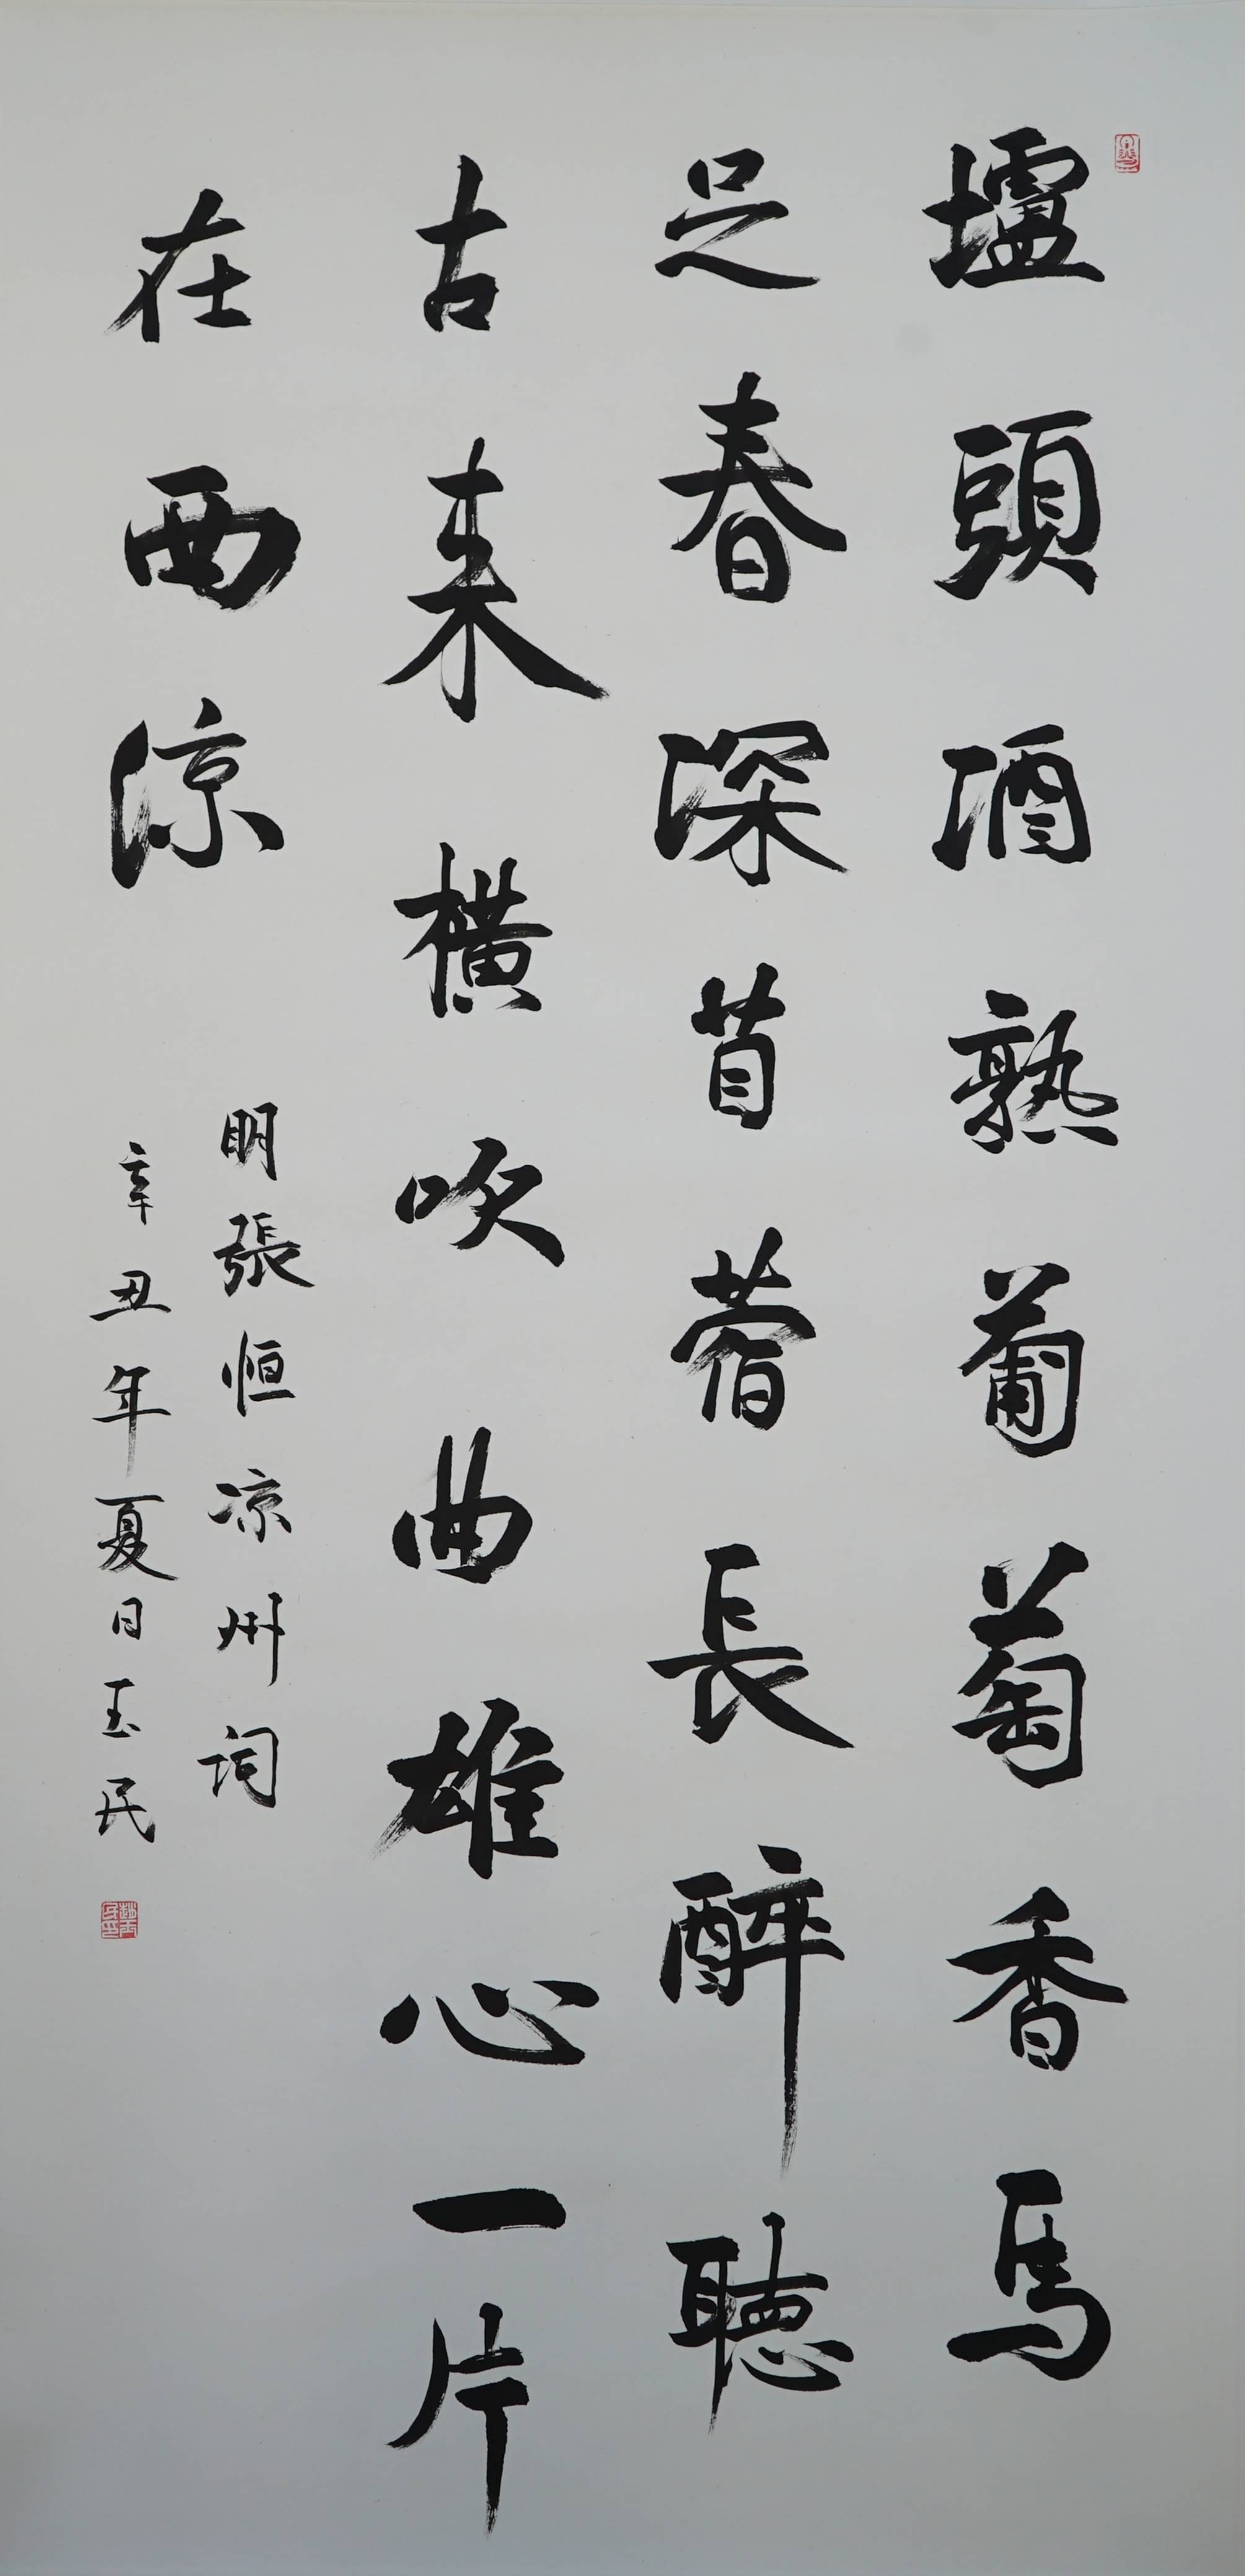 壚頭酒熟葡萄香馬
足春深苜蓿長醉聽
古来横吹曲雄心一片
在西涼
明張恒凉州词
辛丑年夏日玉民